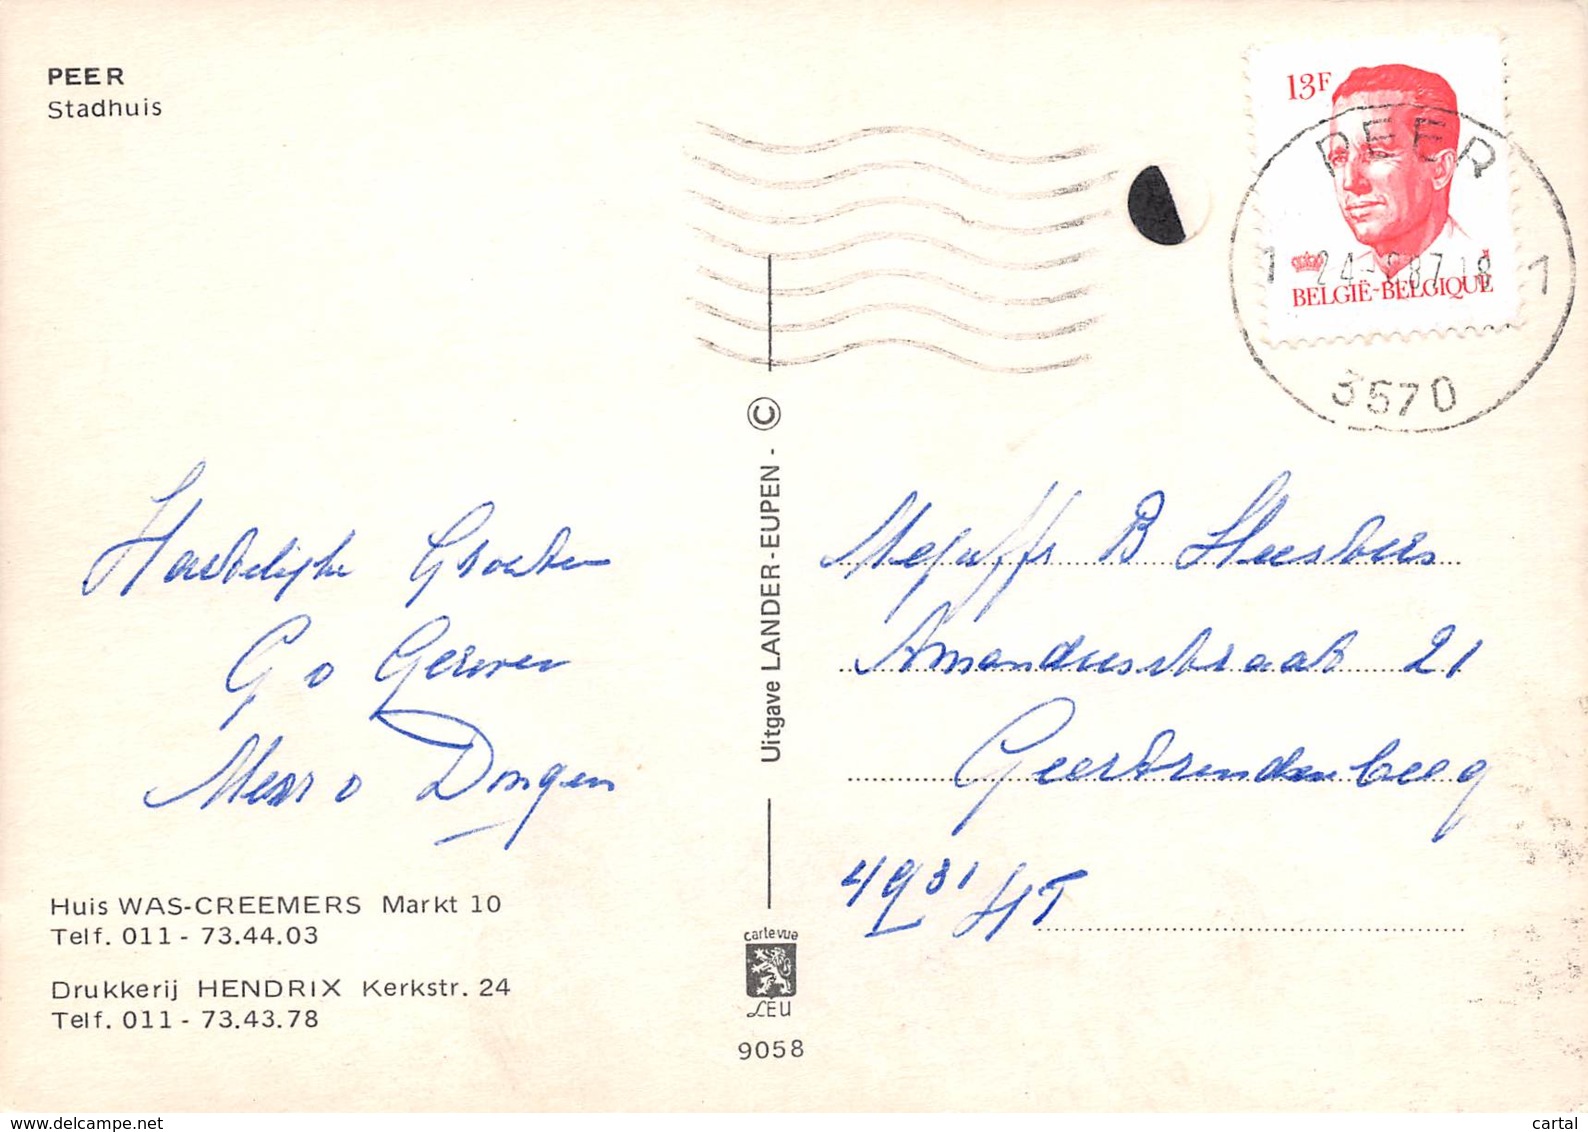 PEER
Stadhuis
13F
PEER
1 24- 87 18 1
BELGIË-BELGIQUE
3570
Uitgave LANDER-EUPEN - ©
Hartelijke Groeten
G v Gerwen
v Dongen
B
Amandusstraat 21
Geertruidenberg
4931 HT
Huis WAS-CREEMERS Markt 10
Telf. 011 - 73.44.03
Drukkerij HENDRIX Kerkstr. 24
Telf. 011 - 73.43.78
carte vue
LEU
9058
delcampe.net
cartal